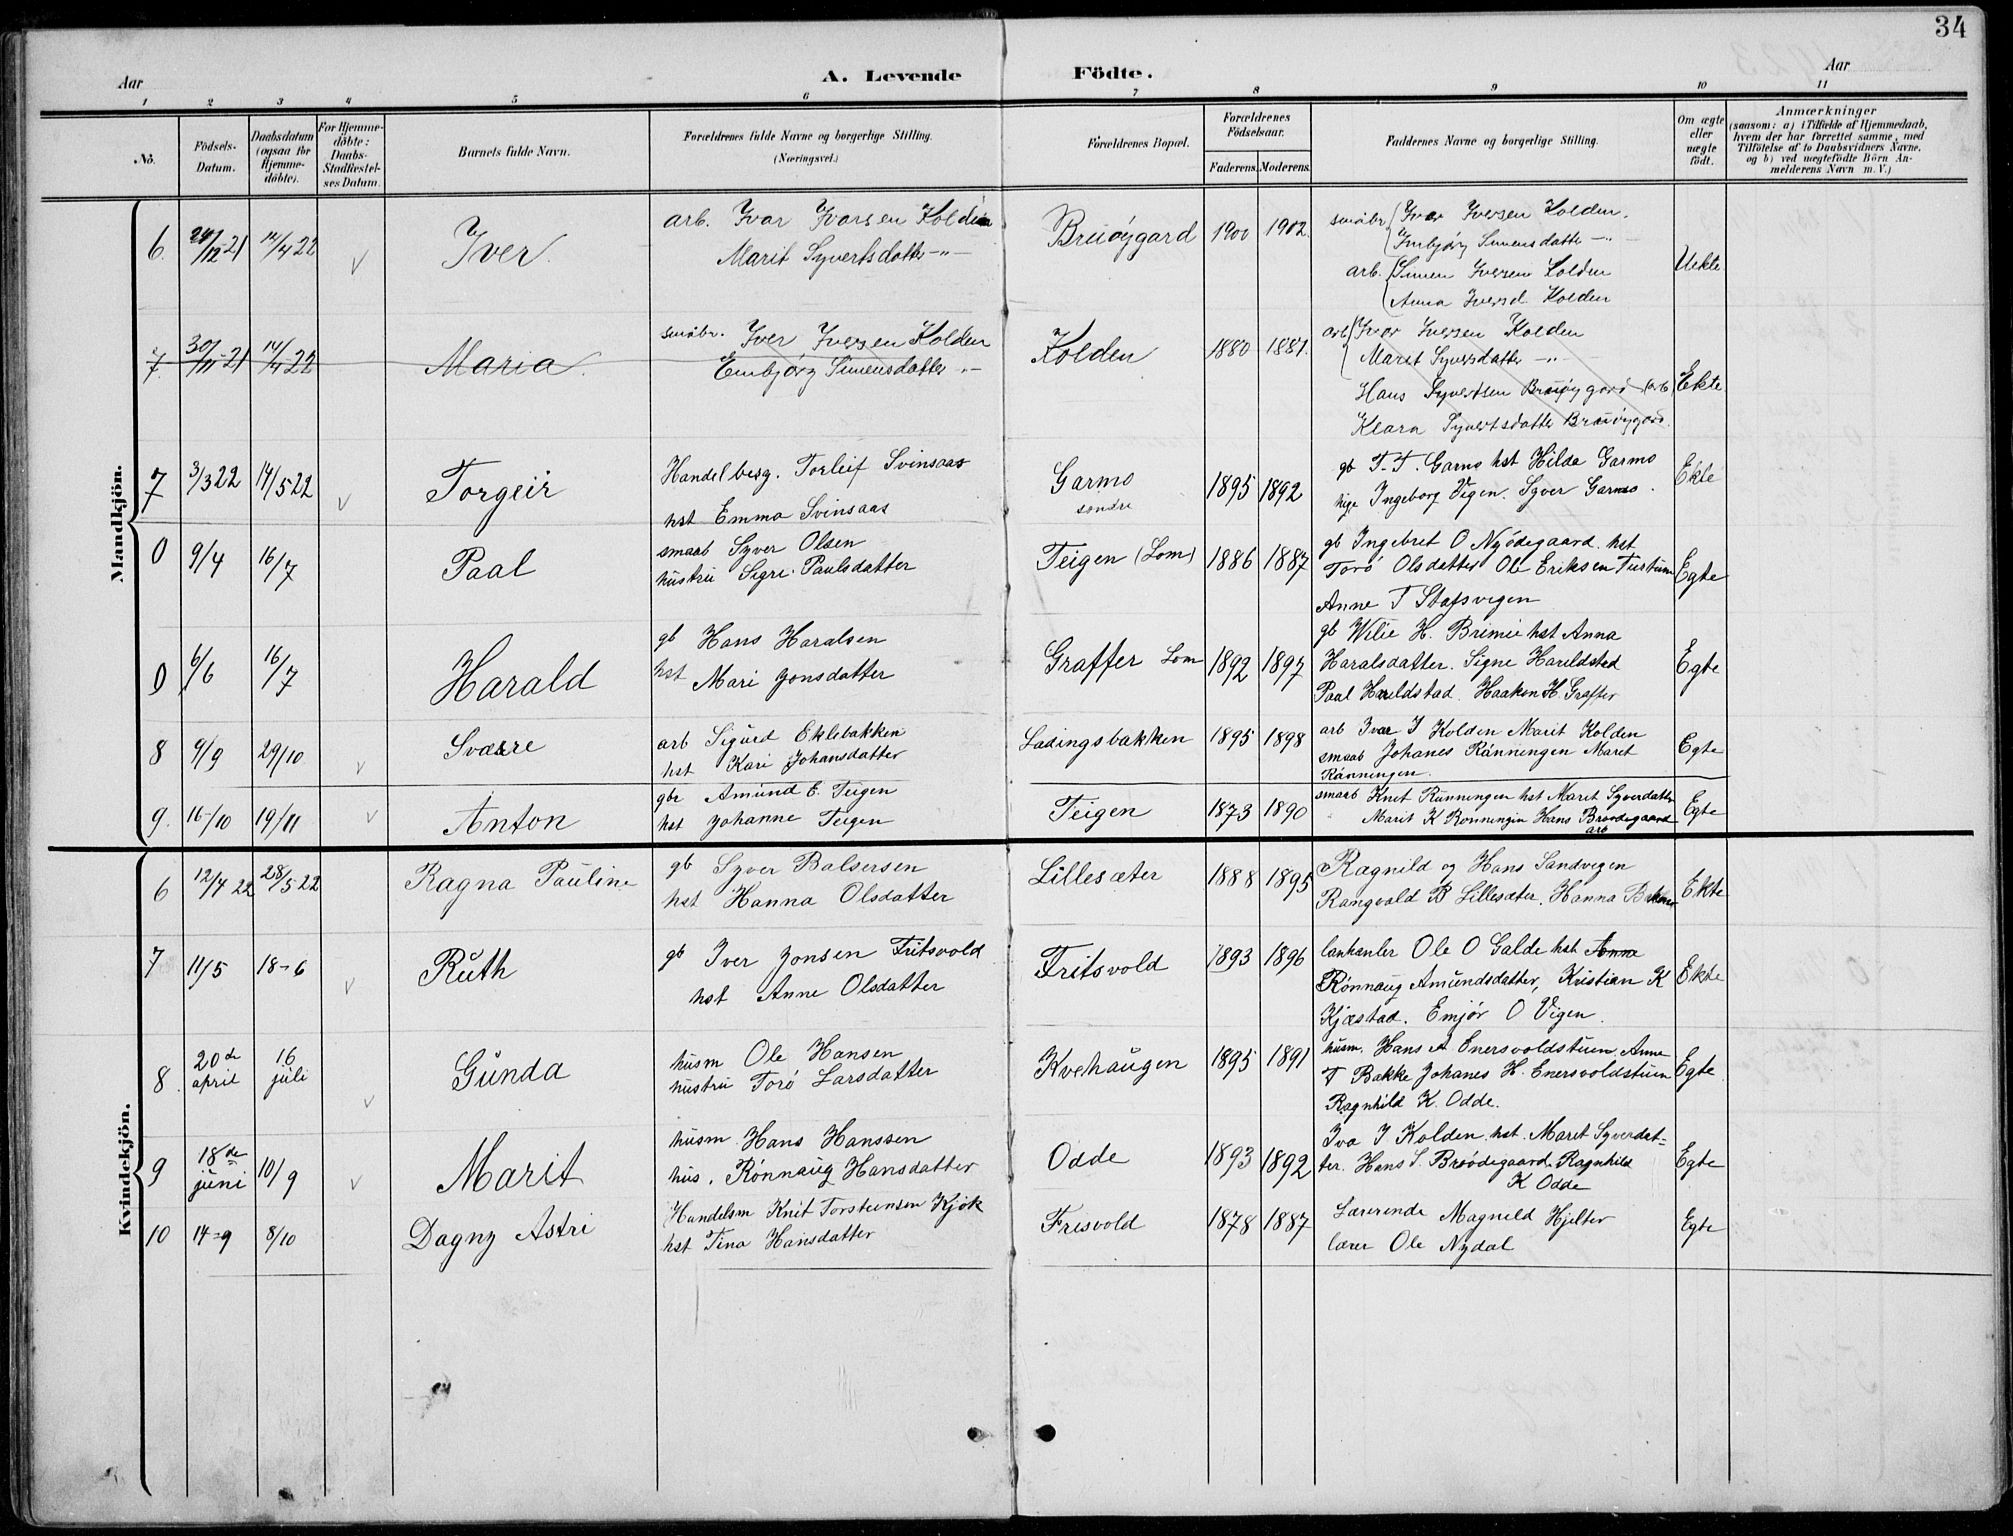 34
Aar
A. Levende Födte.
Aar
1 2 3 4 5 6 7 8 9 10 11
No.
Födsels-Datum.
Daabsdatum (ogsaa for Hjemme-döbte).
For Hjemme-döbte: Daabs-Stadfæstel-ses Datum.
Barnets fulde Navn.
Forældrenes fulde Navne og borgerlige Stilling. (Næringsvei.)
Forældrenes Bopæl.
Forældrenes Födselsaar.
Faderens. Moderens.
Faddernes Navne og borgerlige Stilling.
Om ægte eller uægte födt.
Anmærkninger
(saasom: a) i Tilfælde af Hjemmedaab,
hvem der har forrettet samme, med
Tilföielse af to Daabsvidners Navne,
og b) ved uægtefödte Börn An-
melderens Navn m. V.)
Mandkjön.
6. 24/12-21 14/4 22 Iver. arb. Ivar Ivarsen Kolden
Marit Syvertsdatter -"-
Bruöygard 1900 1902.
smäbr. Iver Iversen Kolden.
Imbjørg Simensdatter -"-
arb. Simen Iversen Kolden
Anna Iversd. Kolden
Uekte
7. 30/11-21 14/4 22 Maria. smäbr. Iver Iversen Kolden
Embjörg Simensdatter -"-
Kolden 1880 1881.
arb Ivar Iversen Kolden
Marit Syversdatter -"-
Hans Syvertsen Bruöygard (arb)
Klara Syvertsdatter Bruöygard.
Ekte
7 3/3 22 14/5 22 Torgeir Handelberg. Torleif Svinsaas
hst Emma Svinsaas
Garmo
søndre
1895 1892
gb T. T. Garmo hst Hilda Garmo
pige Ingeborg Vigen. Syver Garmo.
Ekte
0 9/4 16/7 Paal smaab Syver Olsen
hustru Sigri Paulsdatter
Teigen (Lom) 1886 1887
gb Ingebret O Nyödegaard. hst
Torö Olsdatter Ole Eriksen
Anne T Stafsvegen
Egte
0 6/6 16/7 Harald gb Hans Haralsen
hst Mari Jonsdatter
Graffer Lom 1892 1897
gb Wilie H. Brimie hst Anna
Haralsdatter. Signe Hareldstad
Paal Hareldstad. Haakon H. Graffer
Egte
8 9/9 29/10 Sværre arb Sigurd Eklebakken
hst Kari Johansdatter
Ladingsbakken 1895 1898
arb Ivar I Kolden Marit Kolden
smaab Johanes Rønningen Maret
Rønningen.
Egte
9. 16/10 19/11 Anton gbr Amund E. Teigen
hst Johanne Teigen
Teigen 1873 1890
smaab Knut Runningen hst Maret Syverdatter
Marit K Ronningen Hans Brødegaard
arb
Egte
Kvindekjön.
6 12/4 22 28/5 22 Ragna Pauline gb Syver Balsersen
hst Hanna Olsdatter
Lillesæter 1888 1895
Ragnild og Hans Sandvegen
Rangvald B Lillesæter. Hanna Bakken
Ekte
7 11/5 18-6 Ruth gb Iver Jonsen Fritsvold
hst Anne Olsdatter
Fritsvold 1893 1896
lanhanler Ole O Galde hst Anne
Rønnaug Amundsdatter, Kristian K
Kjæstad. Emjør O Vigen.
Ekte
8. 20de april 16 juli Gunda husm Ole Hansen
hustru Torö Larsdatter
Kvehaugen 1895 1891
husm. Hans A Enersvoldstuen. Anne
T Bakke Johanes H. Enersvoldstuen
Ragnhild K. Odde.
Egte
9 18de juni 10/9 Marit husm Hans Hanssen
hus. Rønnaug Hansdatter
Odde 1893 1892
Iva I Kolden. hst. Maret Syverdat-
ter. Hans S. Brødegaard. Ragnhild
K Odde
Egte
10 14-9 8/10 Dagny Astri Handelsm Knut Torsteinsen Kjök
hst Tina Hansdatter
Fresvold 1878 1887
Lærerende Magnild Hjelter
lærer Ole Nydal
Egte